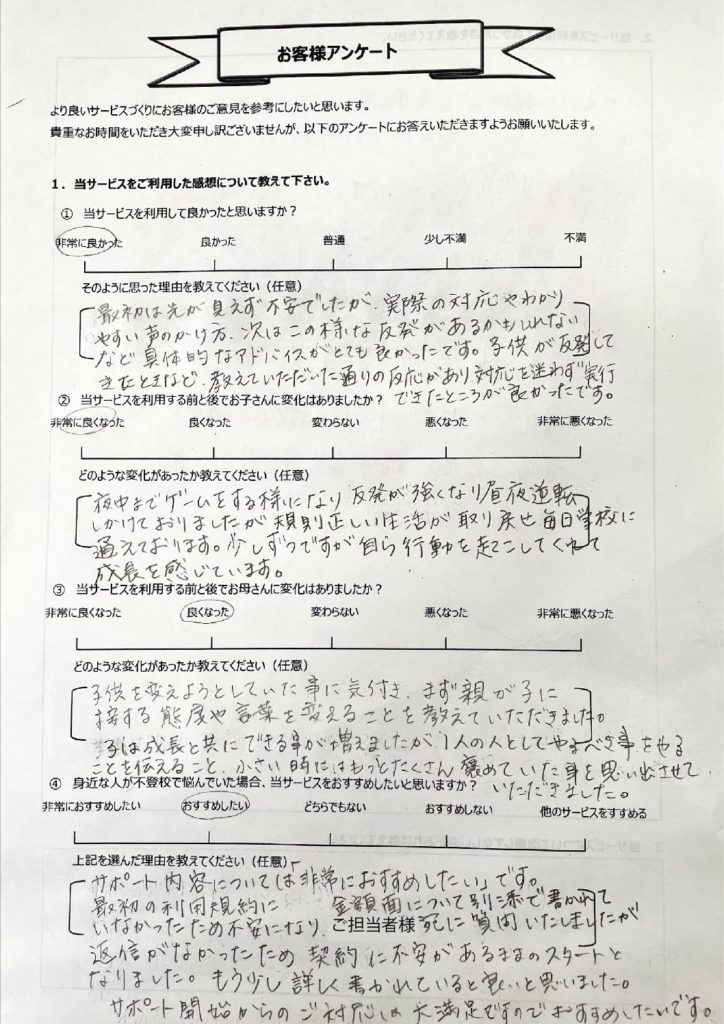 お客様アンケート
より良いサービスづくりにお客様のご意見を参考にしたいと思います。
貴重なお時間をいただき大変申し訳ございませんが、以下のアンケートにお答えいただきますようお願いいたします。
1．当サービスをご利用した感想について教えて下さい。
① 当サービスを利用して良かったと思いますか？
非常に良かった 良かった 普通 少し不満 不満
そのように思った理由を教えてください（任意）
最初は先が見えず不安でしたが、実際の対応やわかり
やすい声のかけ方、次はこの様な反発があるかもしれない
など具体的なアドバイスがとても良かったです。子供が反発して
きたときなど、教えていただいた通りの反応があり対応を迷わず実行
できたところが良かったです。
② 当サービスを利用する前と後でお子さんに変化はありましたか？
非常に良くなった 良くなった 変わらない 悪くなった 非常に悪くなった
どのような変化があったか教えてください（任意）
夜中までゲームをする様になり反発が強くなり昼夜逆転
しかけておりましたが規則正しい生活が取り戻せ毎日学校に
通えております。少しずつですが自ら行動を起こしてくれて
成長を感じています。
③ 当サービスを利用する前と後でお母さんに変化はありましたか？
非常に良くなった 良くなった 変わらない 悪くなった 非常に悪くなった
どのような変化があったか教えてください（任意）
子供を変えようとしていた事に気付き、まず親が子に
接する態度や言葉を変えることを教えていただきました。
子は成長と共にできる事が増えましたが、1人の人としてやるべき事をやる
ことを伝えること、小さい時にはもっとたくさん褒めていた事を思い出させて
いただきました。
④ 身近な人が不登校で悩んでいた場合、当サービスをおすすめしたいと思いますか？
非常におすすめしたい おすすめしたい どちらでもない おすすめしない 他のサービスをすすめる
上記を選んだ理由を教えてください（任意）
サポート内容については「非常におすすめしたい」です。
最初の利用規約に 金額面について別添で書かれて
いなかったため不安になり、ご担当者様宛に質問いたしましたが
返信がなかったため契約に不安があるままのスタートと
なりました。もう少し詳しく書かれていると良いと思いました。
サポート開始からのご対応は大満足ですのでおすすめしたいです。